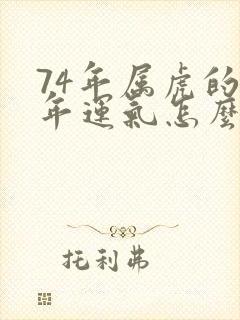 74年属虎的
年運氣怎麽
托利弗